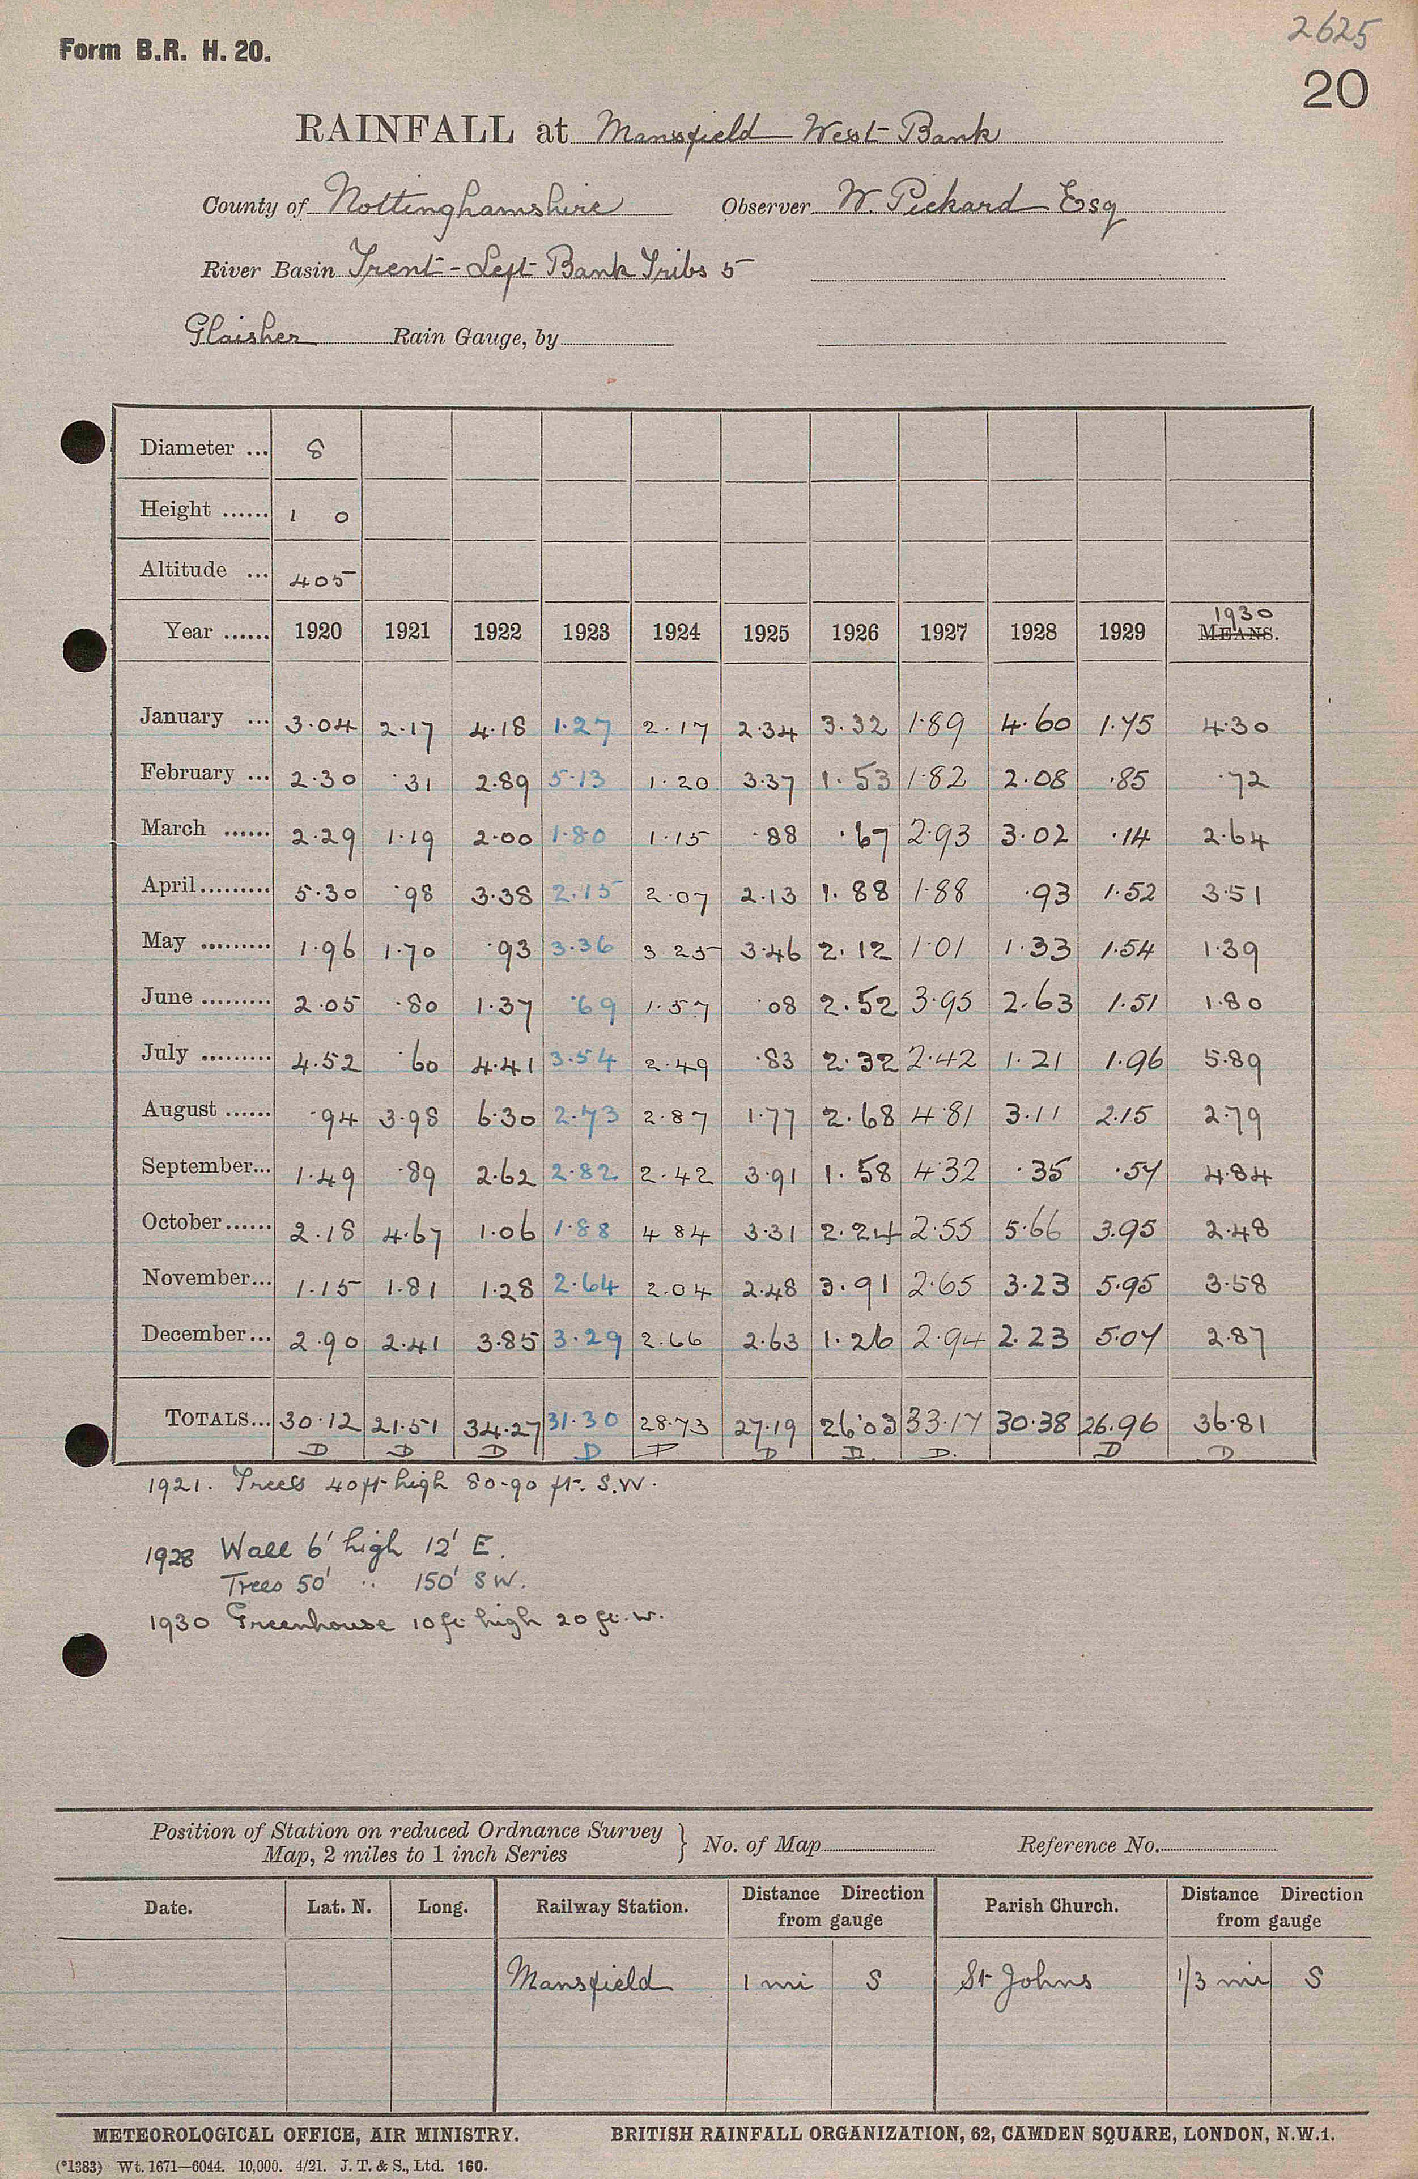 2625
Form B.R. H. 20.
20
RAINFALL at Mansfield West Bank
County of Nottinghamshire Observer W. Pickard Esq
River Basin Trent - Left Bank Tribs 5
Glaisher Rain Gauge, by
Diameter ... 8
Height ...... 1 0
Altitude ... 405
1930
Year ...... 1920 1921 1922 1923 1924 1925 1926 1927 1928 1929 MEANS.
January ... 3.04 2.17 4.18 1.27 2.17 2.34 3.32 1.89 4.60 1.75 4.30
February ... 2.30 .31 2.89 5.13 1.20 3.37 1.53 1.82 2.08 .85 .72
March ...... 2.29 1.19 2.00 1.80 1.15 .88 .67 2.93 3.02 .14 2.64
April......... 5.30 .98 3.38 2.15 2.07 2.13 1.88 1.88 .93 1.52 3.51
May ......... 1.96 1.70 .93 3.36 3 25 3.46 2.12 1.01 1.33 1.54 1.39
June ......... 2.05 .80 1.37 .69 1.57 .08 2.52 3.95 2.63 1.51 1.80
July ......... 4.52 .60 4.41 3.54 2.49 .83 2.32 2.42 1.21 1.96 5.89
August ...... .94 3.98 6.30 2.73 2.87 1.77 2.68 4.81 3.11 2.15 2.79
September... 1.49 .89 2.62 2.82 2.42 3.91 1.58 4.32 .35 .57 4.84
October...... 2.18 4.67 1.06 1.88 4 84 3.31 2.24 2.55 5.66 3.95 2.48
November... 1.15 1.81 1.28 2.64 2.04 2.48 3.91 2.65 3.23 5.95 3.58
December... 2.90 2.41 3.85 3.29 2.66 2.63 1.26 2.94 2.23 5.07 2.87
TOTALS... 30.12 21.51 34.27 31.30 28.73 27.19 26.03 33.17 30.38 26.96 36.81
D D D D D D D D. D D
1921. Trees 40ft high 80-90 ft. S.W.
1928 Wall 6' high 12' E.
Trees 50' .. 150' SW.
1930 Greenhouse 10ft high 20 ft. W.
Position of Station on reduced Ordnance Survey
Map, 2 miles to 1 inch Series } No. of Map Reference No.
Date. Lat. N. Long. Railway Station. Distance Direction from gauge Parish Church. Distance Direction from gauge
Mansfield 1 mi S St Johns 1/3 mi S
METEOROLOGICAL OFFICE, AIR MINISTRY. BRITISH RAINFALL ORGANIZATION, 62, CAMDEN SQUARE, LONDON, N.W.1.
(*1383) Wt. 1671—6044. 10,000. 4/21. J. T. & S., Ltd. 160.